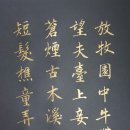 放牧園中牛
望夫臺上妾
蒼煙古木溪
短髮樵童弄